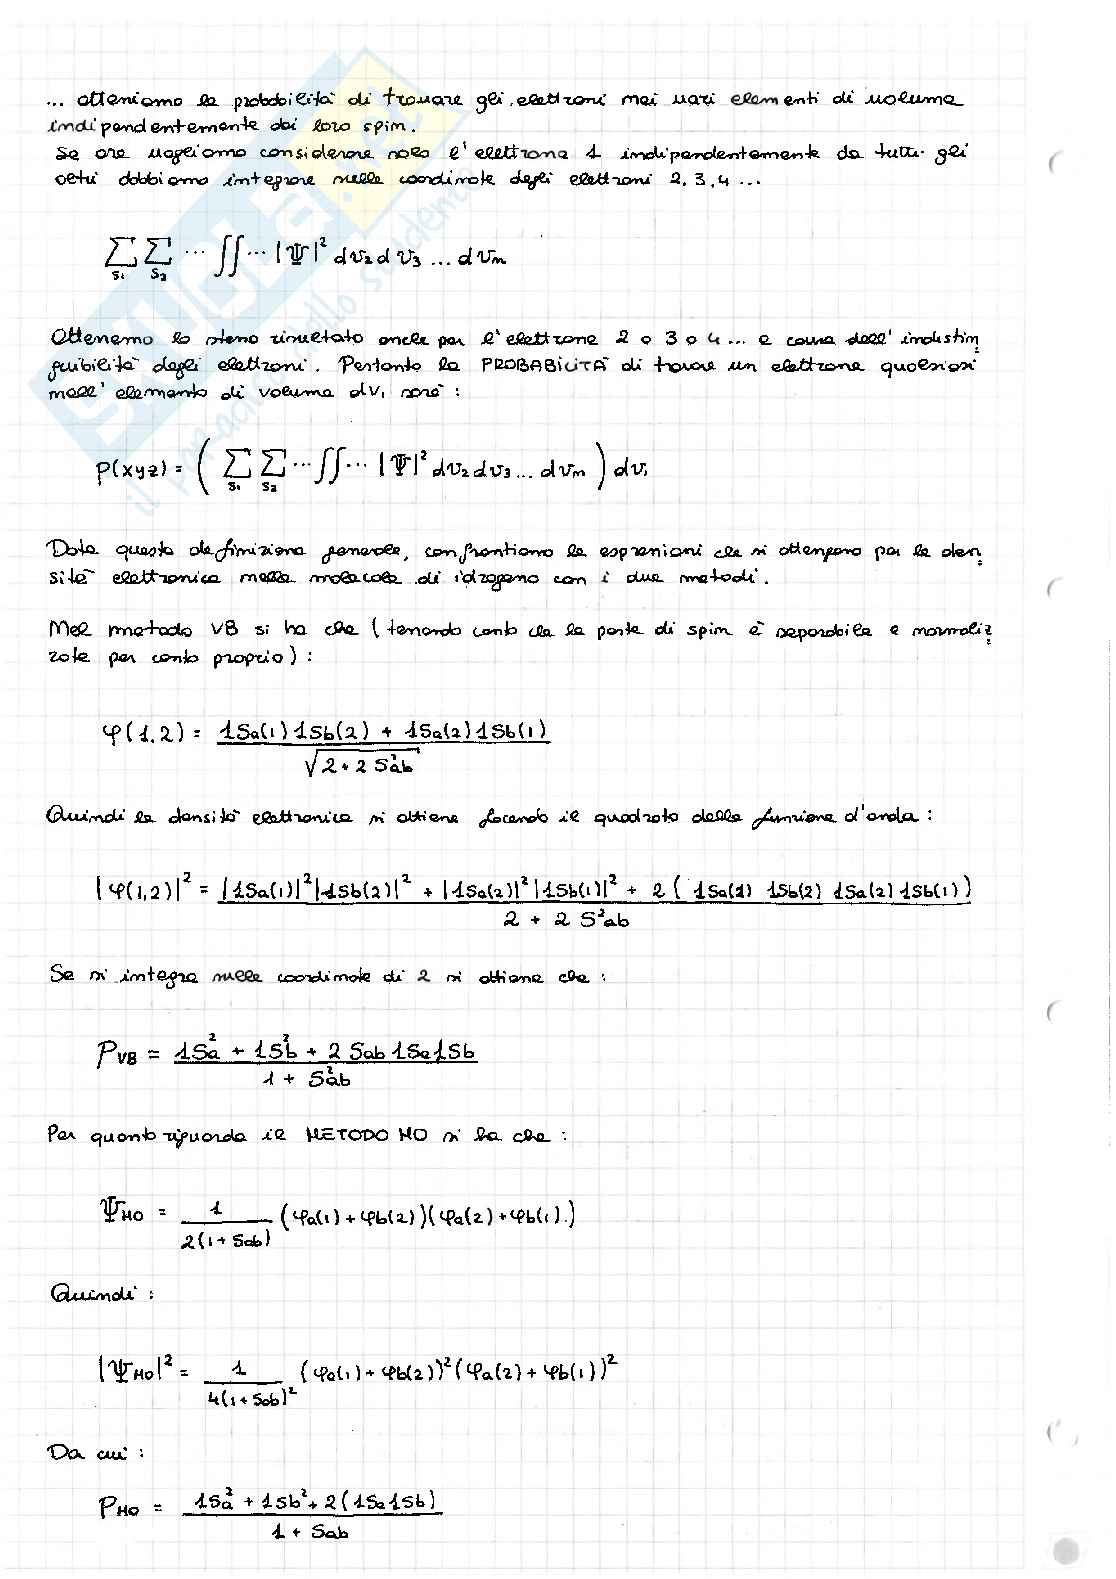 ... otteniamo la probabilità di trovare gli elettroni nei vari elementi di volume
indipendentemente dai loro spin.
Se ora vogliamo considerare solo l'elettrone 1 indipendentemente da tutti gli
altri dobbiamo integrare nelle coordinate degli elettroni 2, 3, 4 ...
∑s₁ ∑s₂ ... ∬ ... |Ψ|² dv₂ dv₃ ... dvn
Otteniamo lo stesso risultato anche per l'elettrone 2 o 3 o 4 ... a causa dell'indistin
guibilità degli elettroni. Pertanto la PROBABILITÀ di trovare un elettrone qualsiasi
nell'elemento di volume dV₁ sarà :
P(xyz) = ( ∑s₁ ∑s₂ ... ∬ ... |Ψ|² dv₂ dv₃ ... dvn ) dv₁
Data questa definizione generale, confrontiamo le espressioni che si ottengono per la den
sità elettronica nella molecola di idrogeno con i due metodi.
Nel metodo VB si ha che (tenendo conto che la parte di spin è separabile e normaliz
zata per conto proprio) :
φ(1,2) = 1Sa(1) 1Sb(2) + 1Sa(2) 1Sb(1) / √2 + 2 S²ab
Quindi la densità elettronica si ottiene facendo il quadrato della funzione d'onda :
|φ(1,2)|² = |1Sa(1)|² |1Sb(2)|² + |1Sa(2)|² |1Sb(1)|² + 2 ( 1Sa(1) 1Sb(2) 1Sa(2) 1Sb(1) ) / 2 + 2 S²ab
Se si integra nelle coordinate di 2 si ottiene che :
PVB = 1Sa² + 1Sb² + 2 Sab 1Sa 1Sb / 1 + S²ab
Per quanto riguarda il METODO MO si ha che :
ΨMO = 1 / 2(1 + Sab) (φa(1) + φb(2)) (φa(2) + φb(1))
Quindi :
|ΨMO|² = 1 / 4(1 + Sab)² (φa(1) + φb(2))² (φa(2) + φb(1))²
Da cui :
PMO = 1Sa² + 1Sb² + 2 (1Sa 1Sb) / 1 + Sab